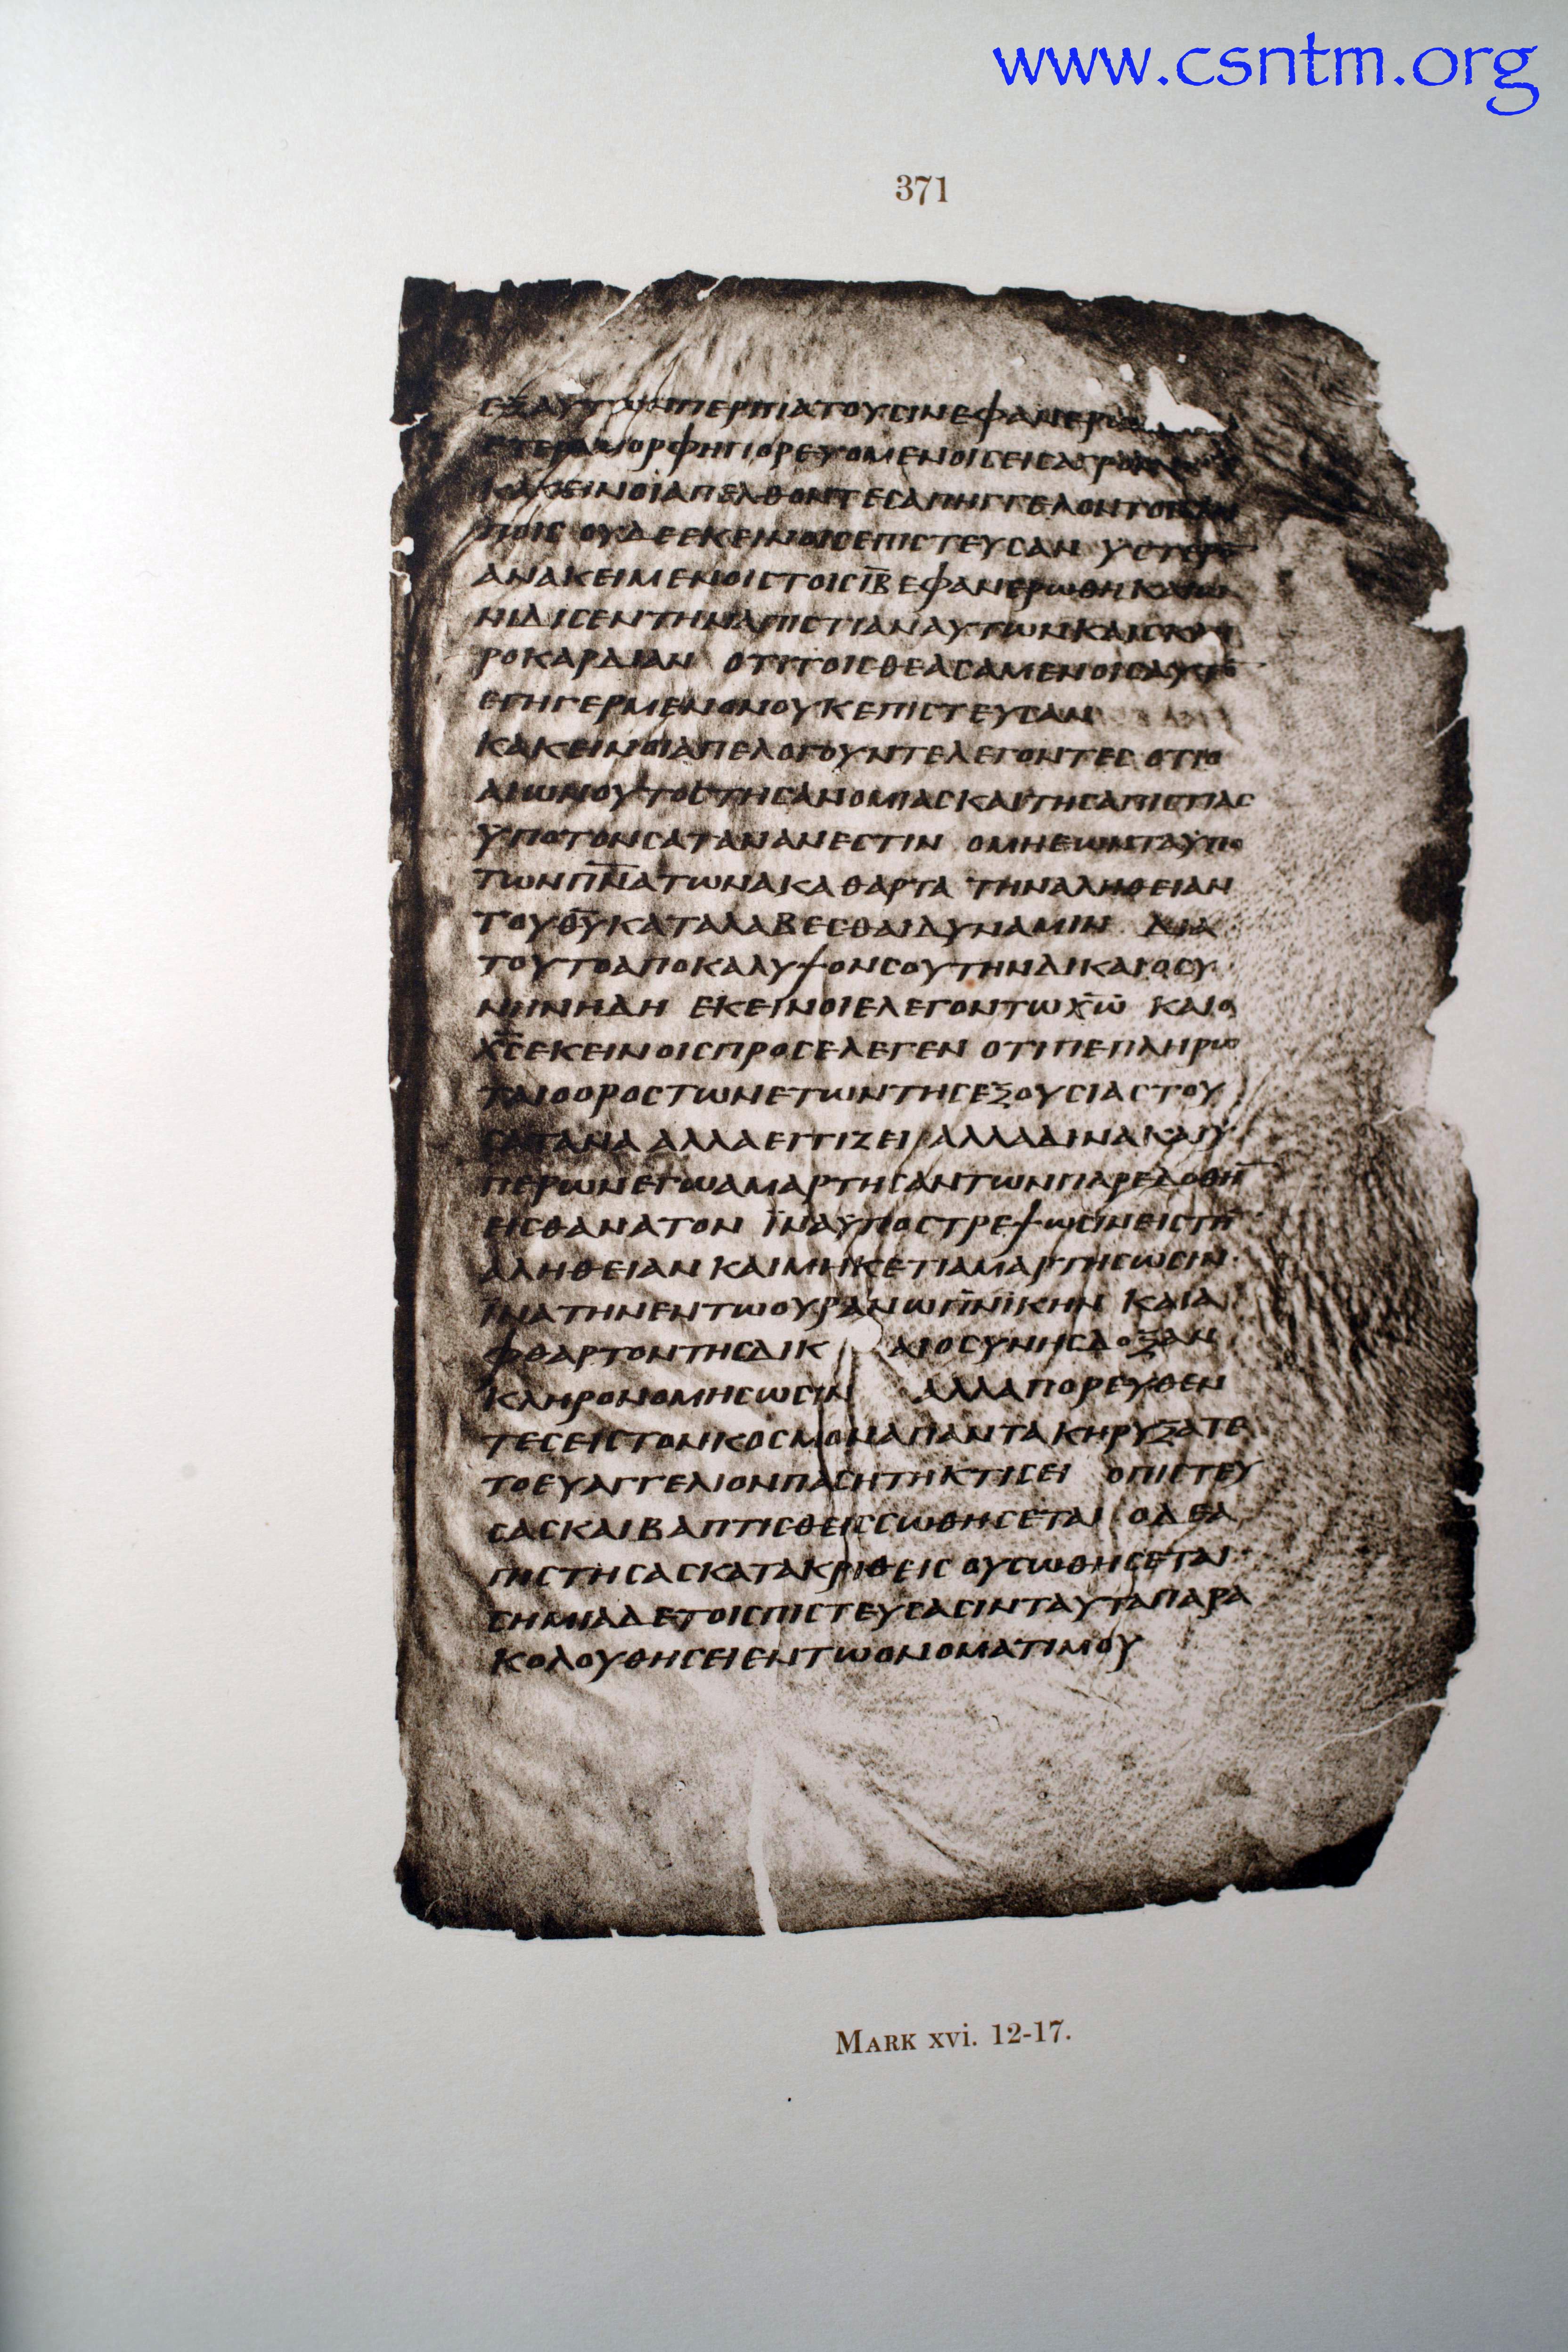 www.csntm.org
371
ΕΞΑΥΤΩΝΠΕΡΙΠΑΤΟΥCΙΝΕΦΑΝΕΡΩ
ΕΤΕΡΑΜΟΡΦΗΠΟΡΕΥΟΜΕΝΟΙCΕΙCΑΓΡΟΝ
ΚΑΚΕΙΝΟΙΑΠΕΛΘΟΝΤΕCΑΠΗΓΓΕΛΟΝΤΟΙC
ΠΟΙC ΟΥΔΕΕΚΕΙΝΟΙCΕΠΙCΤΕΥCΑΝ ΥCΤΕΡΟ̅
ΑΝΑΚΕΙΜΕΝΟΙCΤΟΙCΙ̅Β̅ΕΦΑΝΕΡΩΘΗΚΑΙΩ
ΝΙΔΙCΕΝΤΗΝΑΠΙCΤΙΑΝΑΥΤΩΝΚΑΙCΚΛΗ
ΡΟΚΑΡΔΙΑΝ ΟΤΙΤΟΙCΘΕΑCΑΜΕΝΟΙCΑΥΤΟ̅
ΕΓΗΓΕΡΜΕΝΟΝΟΥΚΕΠΙCΤΕΥCΑΝ
ΚΑΚΕΙΝΟΙΑΠΕΛΟΓΟΥΝΤΕΛΕΓΟΝΤΕC ΟΤΙΟ
ΑΙΩΝΟΥΤΟCΤΗCΑΝΟΜΙΑCΚΑΙΤΗCΑΠΙCΤΙΑC
ΥΠΟΤΟΝCΑΤΑΝΑΝΕCΤΙΝ ΟΜΗΕΩΝΤΑΥΠΟ
ΤΩΝΠ̅Ν̅ΑΤΩΝΑΚΑΘΑΡΤΑ ΤΗΝΑΛΗΘΕΙΑΝ
ΤΟΥΘ̅Υ̅ΚΑΤΑΛΑΒΕCΘΑΙΔΥΝΑΜΙΝ ΔΙΑ
ΤΟΥΤΟΑΠΟΚΑΛΥΨΟΝCΟΥΤΗΝΔΙΚΑΙΟCΥ
ΝΗΝΗΔΗ ΕΚΕΙΝΟΙΕΛΕΓΟΝΤΩΧ̅Ω̅ ΚΑΙΟ
Χ̅C̅ΕΚΕΙΝΟΙCΠΡΟCΕΛΕΓΕΝ ΟΤΙΠΕΠΛΗΡΩ
ΤΑΙΟΟΡΟCΤΩΝΕΤΩΝΤΗCΕΞΟΥCΙΑCΤΟΥ
CΑΤΑΝΑ ΑΛΛΑΕΓΓΙΖΕΙ ΑΛΛΑΔΙΝΑΚΑΙΥ
ΠΕΡΩΝΕΓΩΑΜΑΡΤΗCΑΝΤΩΝΠΑΡΕΔΟΘΗ̅
ΕΙCΘΑΝΑΤΟΝ ΪΝΑΥΠΟCΤΡΕΨΩCΙΝΕΙCΤΗ̅
ΑΛΗΘΕΙΑΝ ΚΑΙΜΗΚΕΤΙΑΜΑΡΤΗCΩCΙΝ
ΪΝΑΤΗΝΕΝΤΩΟΥΡΑΝΩΠ̅Ν̅ΙΚΗΝ ΚΑΙΑ
ΦΘΑΡΤΟΝΤΗCΔΙΚ ΑΙΟCΥΝΗCΔΟΞΑΝ
ΚΛΗΡΟΝΟΜΗCΩCΙΝ ΑΛΛΑΠΟΡΕΥΘΕΝ
ΤΕCΕΙCΤΟΝΚΟCΜΟΝΑΠΑΝΤΑΚΗΡΥΞΑΤΕ
ΤΟΕΥΑΓΓΕΛΙΟΝΠΑCΗΤΗΚΤΙCΕΙ ΟΠΙCΤΕΥ
CΑCΚΑΙΒΑΠΤΙCΘΕΙCCΩΘΗCΕΤΑΙ ΟΔΕΑ
ΠΙCΤΗCΑCΚΑΤΑΚΡΙΘΕΙC ΟΥCΩΘΗCΕΤΑΙ
CΗΜΙΑΔΕΤΟΙCΠΙCΤΕΥCΑCΙΝΤΑΥΤΑΠΑΡΑ
ΚΟΛΟΥΘΗCΕΙΕΝΤΩΟΝΟΜΑΤΙΜΟΥ
MARK xvi. 12-17.